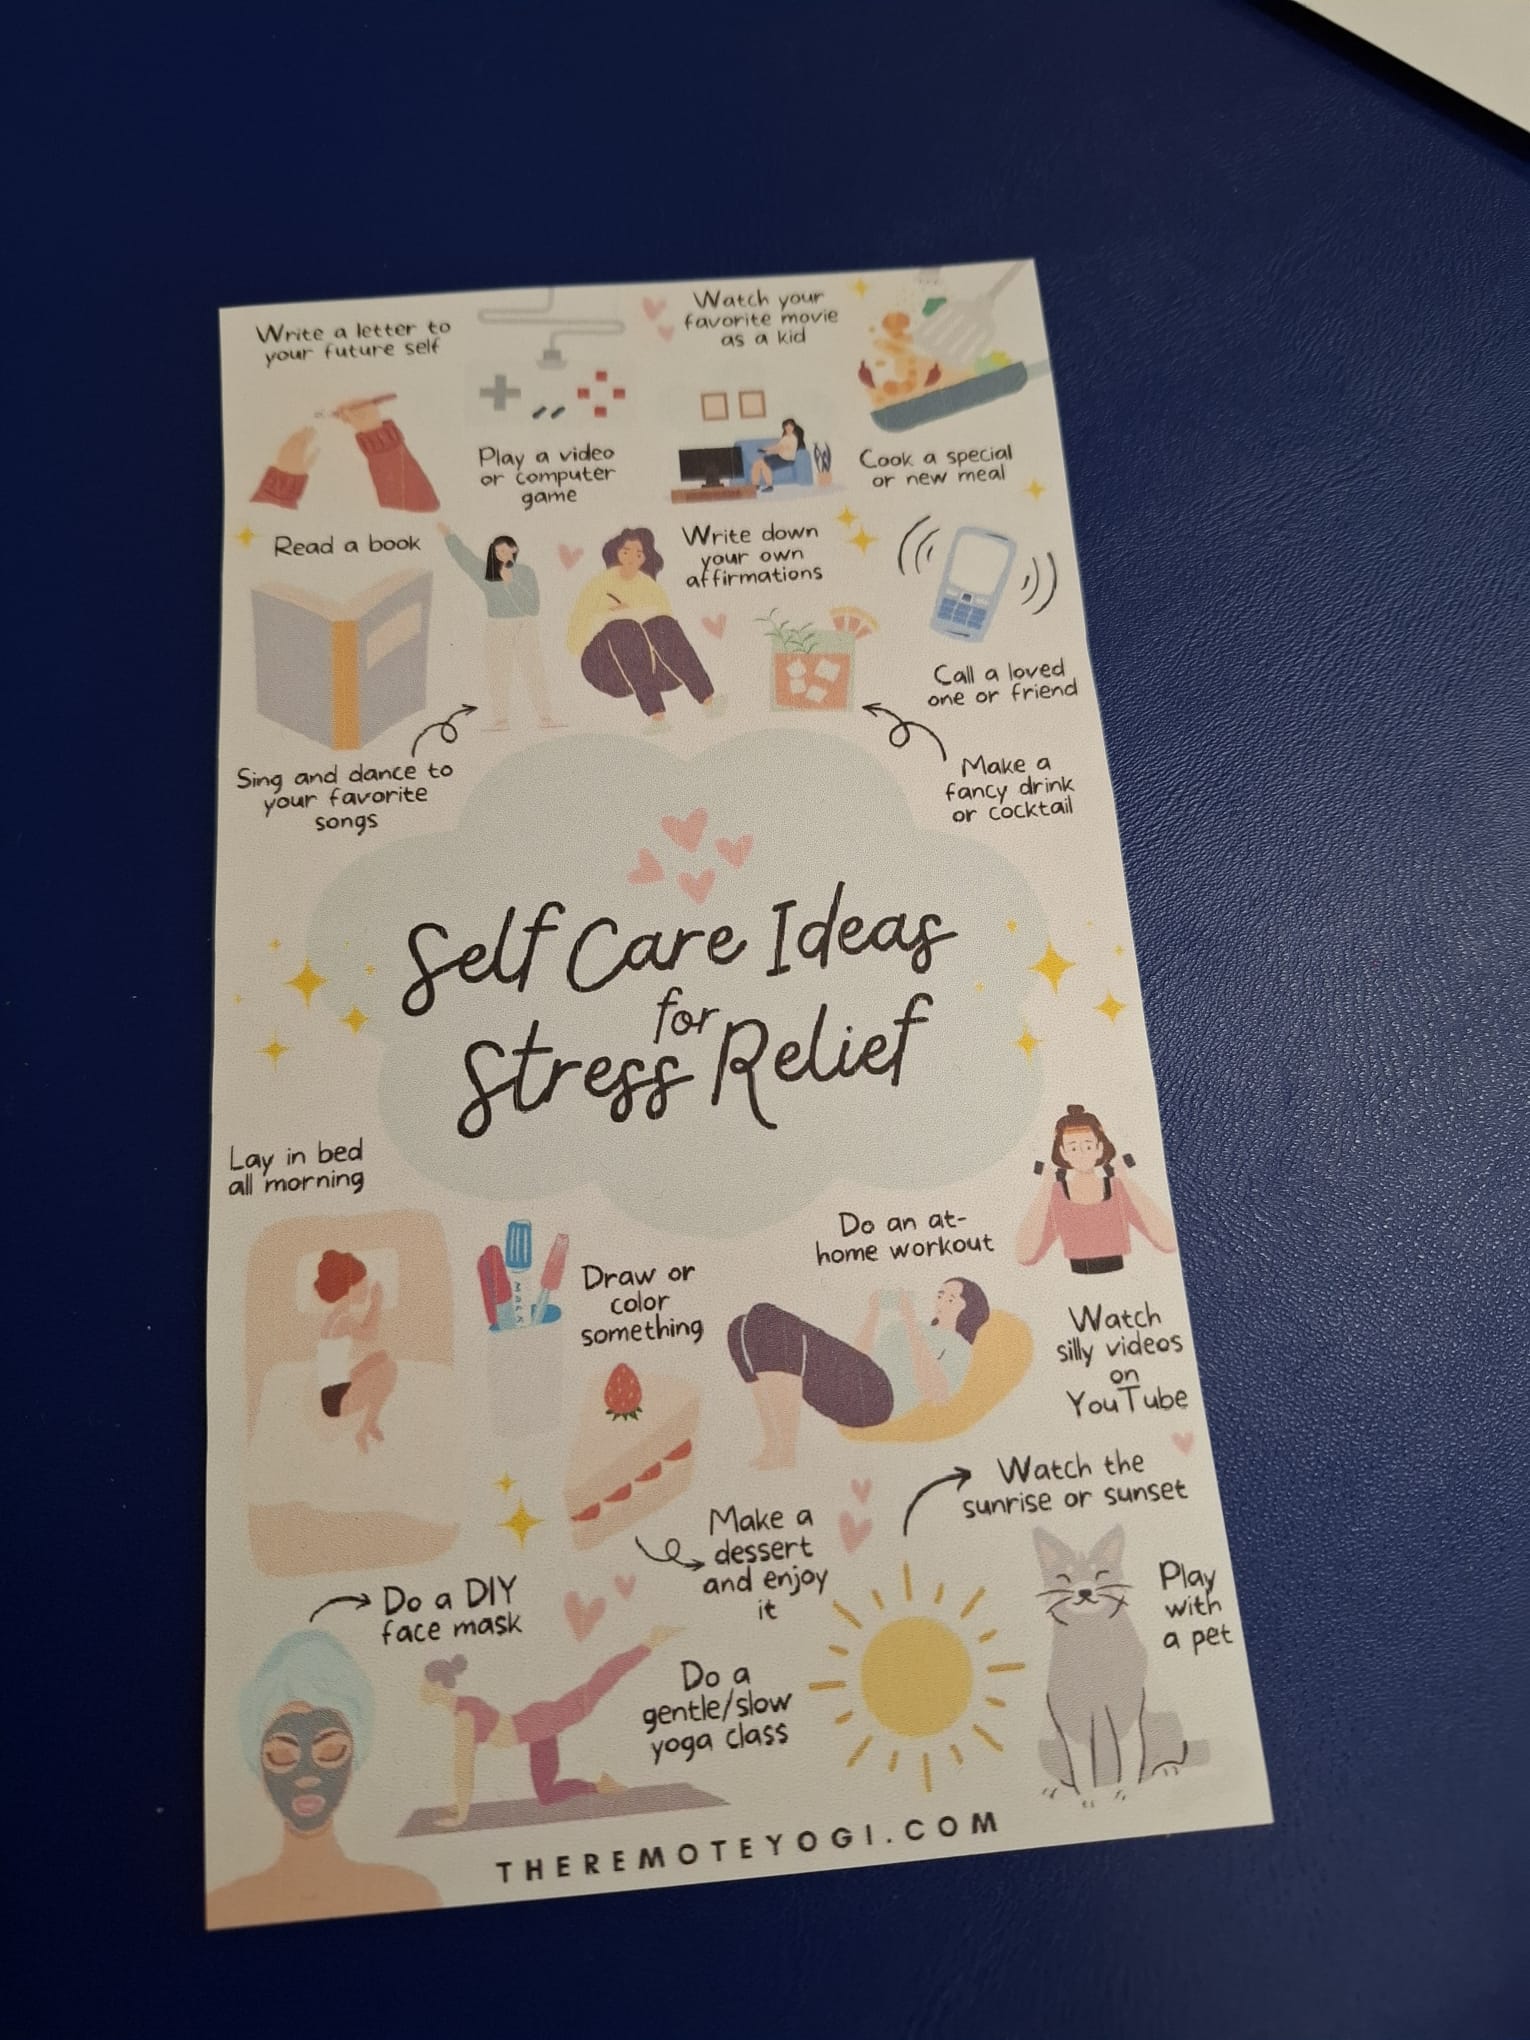 Write a letter to
your future self
Play a video
or computer
game
Watch your
favorite movie
as a kid
Cook a special
or new meal
Read a book
Write down
your own
affirmations
Call a loved
one or friend
Sing and dance to
your favorite
songs
Make a
fancy drink
or cocktail
Self Care Ideas
for
Stress Relief
Lay in bed
all morning
Draw or
color
something
Do an at-
home workout
Watch
silly videos
on
YouTube
Watch the
sunrise or sunset
Make a
dessert
and enjoy
it
Do a DIY
face mask
Do a
gentle/slow
yoga class
Play
with
a pet
THEREMOTEYOGI.COM